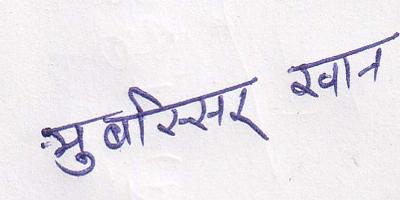 मुबस्सिर खान